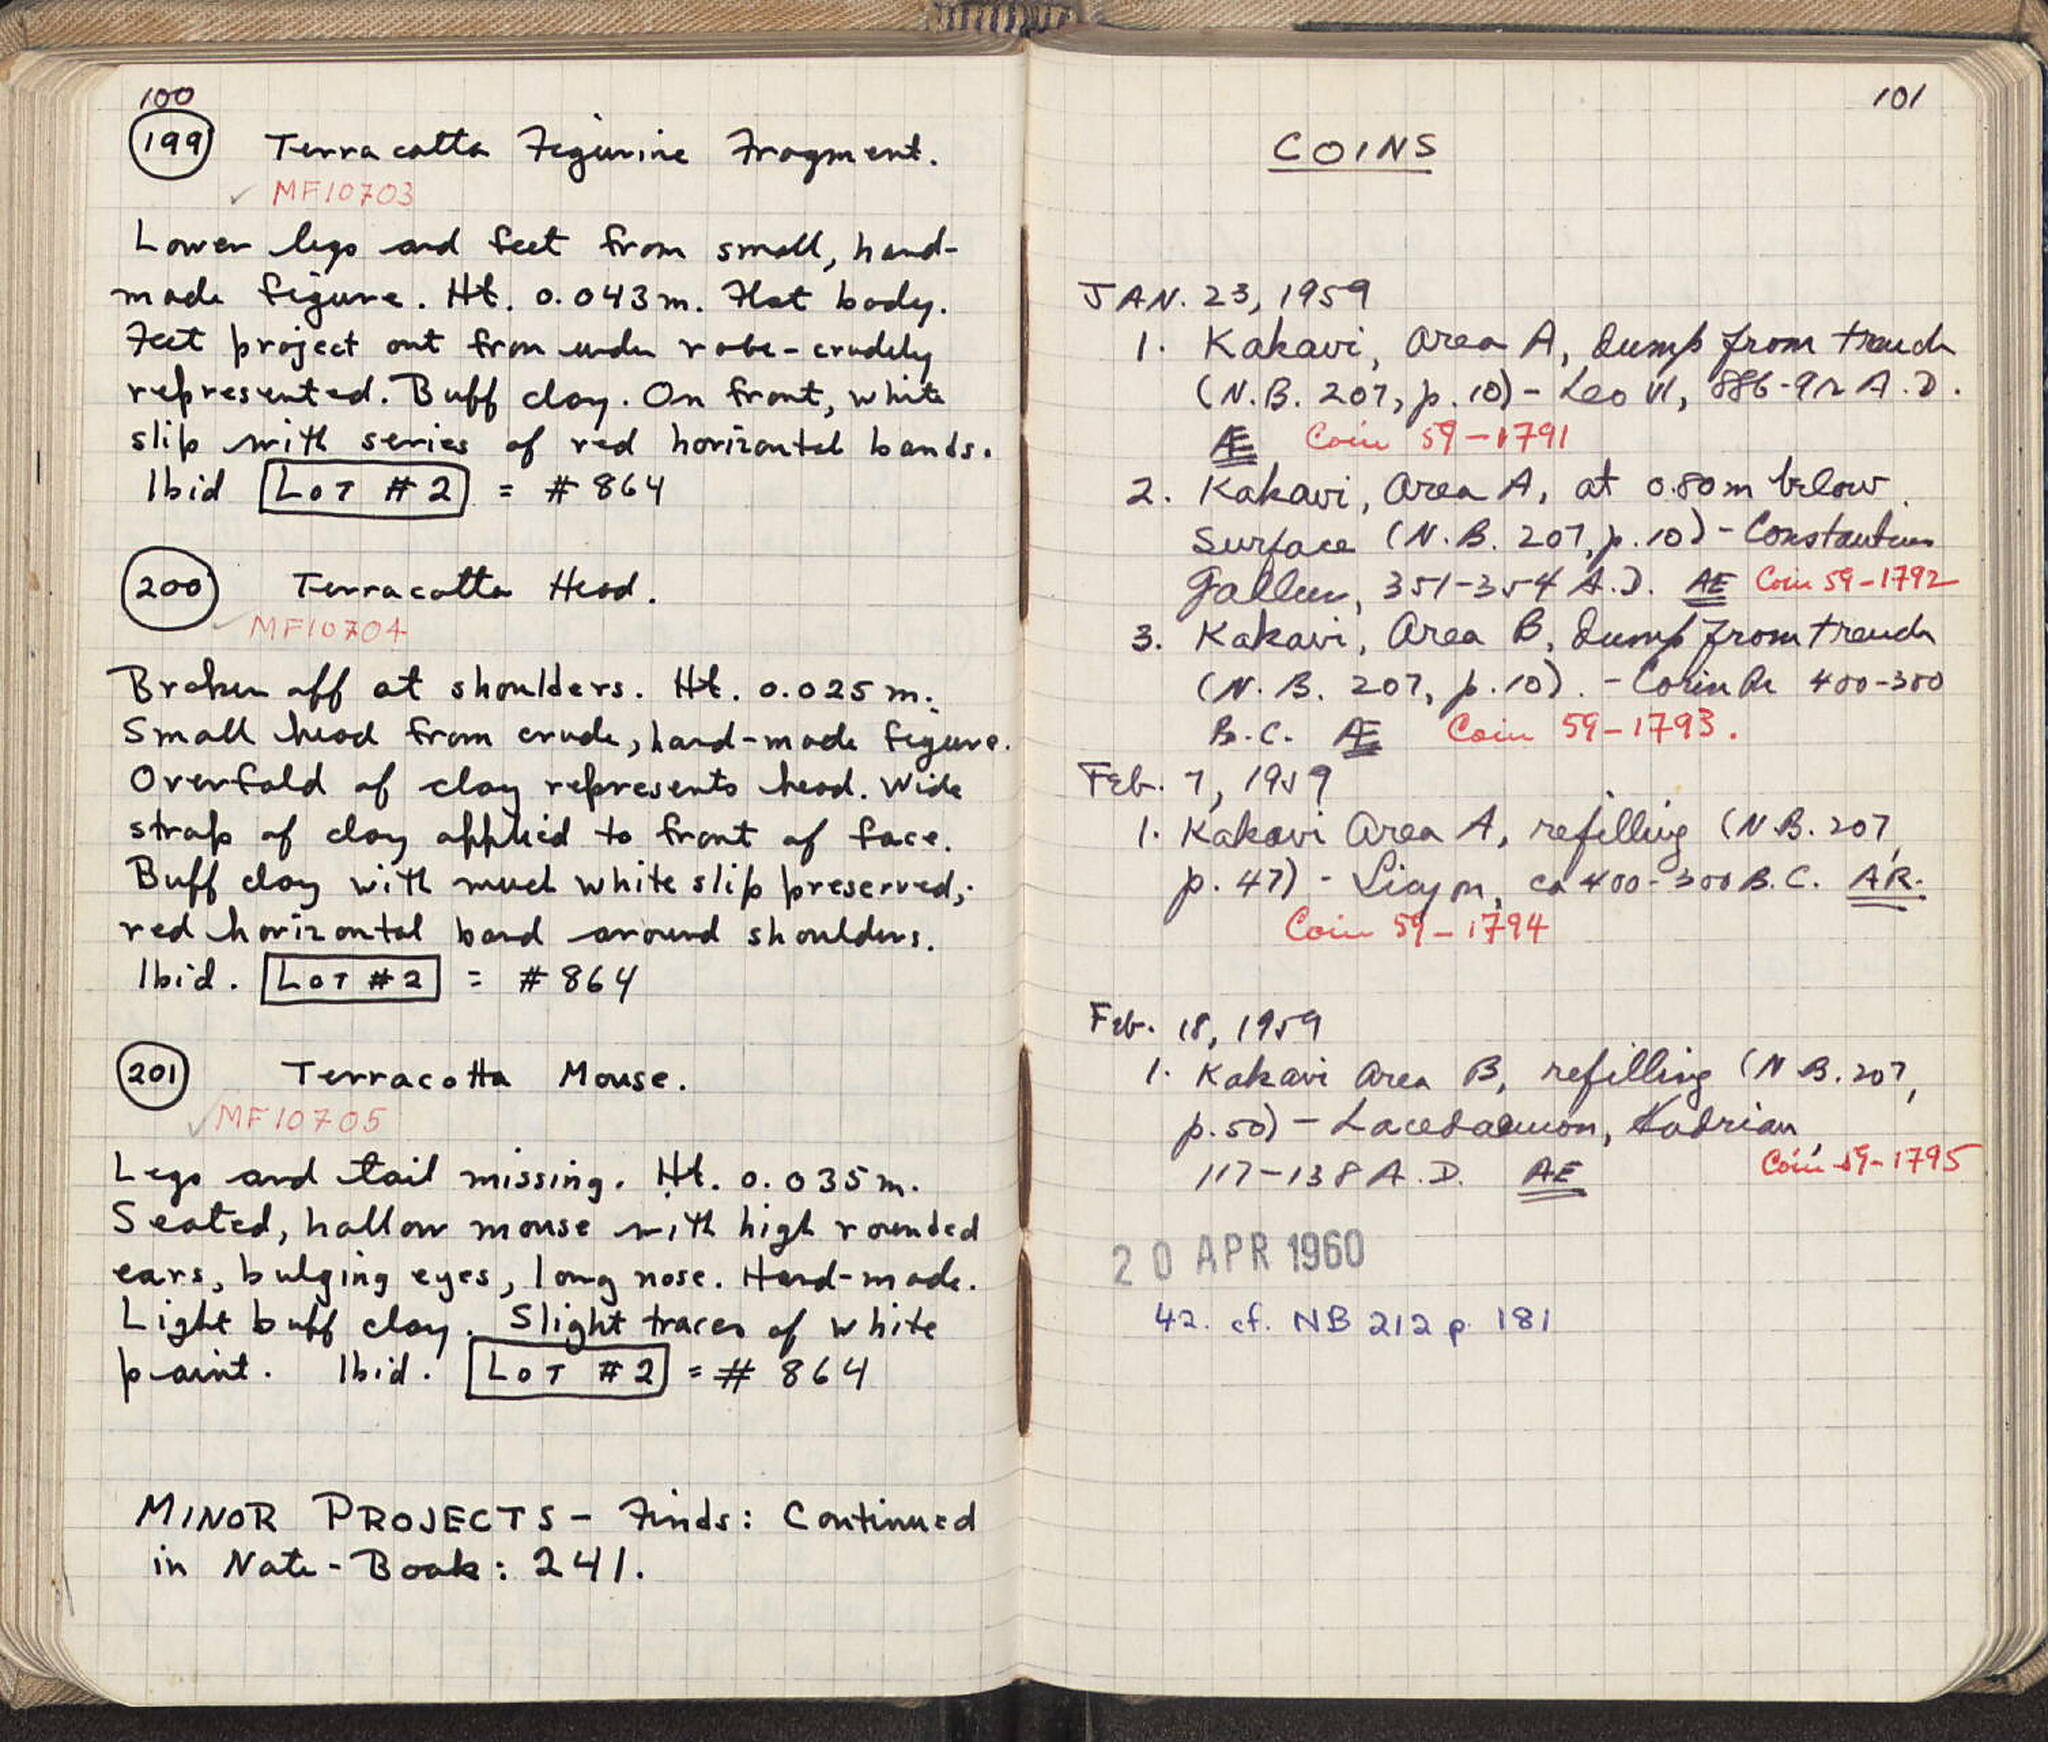 100
199 Terracotta Figurine Fragment.
✓ MF10703
Lower legs and feet from small, hand-
made figure. Ht. 0.043m. Flat body.
Feet project out from under robe-crudely
represented. Buff clay. On front, white
slip with series of red horizontal bands.
Ibid LOT #2 = #864
200 Terracotta Head.
✓ MF10704
Broken off at shoulders. Ht. 0.025m.
Small head from crude, hand-made figure.
Overfold of clay represents head. Wide
strap of clay applied to front of face.
Buff clay with much white slip preserved;
red horizontal band around shoulders.
Ibid. LOT #2 = #864
201 Terracotta Mouse.
✓ MF10705
Legs and tail missing. Ht. 0.035m.
Seated, hollow mouse with high rounded
ears, bulging eyes, long nose. Hand-made.
Light buff clay. Slight traces of white
paint. Ibid. LOT #2 = # 864
MINOR PROJECTS - Finds: Continued
in Note-Book: 241.
101
COINS
JAN. 23, 1959
1. Kakavi, Area A, dump from trench
(N.B. 207, p.10) - Leo VI, 886-912 A.D.
AE Coin 59-1791
2. Kakavi, Area A, at 0.80m below
surface (N.B. 207, p.10) - Constantius
Gallus, 351-354 A.D. AE Coin 59-1792
3. Kakavi, Area B, dump from trench
(N.B. 207, p.10). - Corinth 400-300
B.C. AE Coin 59-1793.
Feb. 7, 1959
1. Kakavi Area A, refilling (N.B. 207,
p. 47) - Sicyon, ca 400-300 B.C. AR.
Coin 59-1794
Feb. 18, 1959
1. Kakavi Area B, refilling (N.B. 207,
p.50) - Lacedaemon, Hadrian,
117-138 A.D. AE Coin 59-1795
20 APR 1960
42. cf. NB 212 p. 181